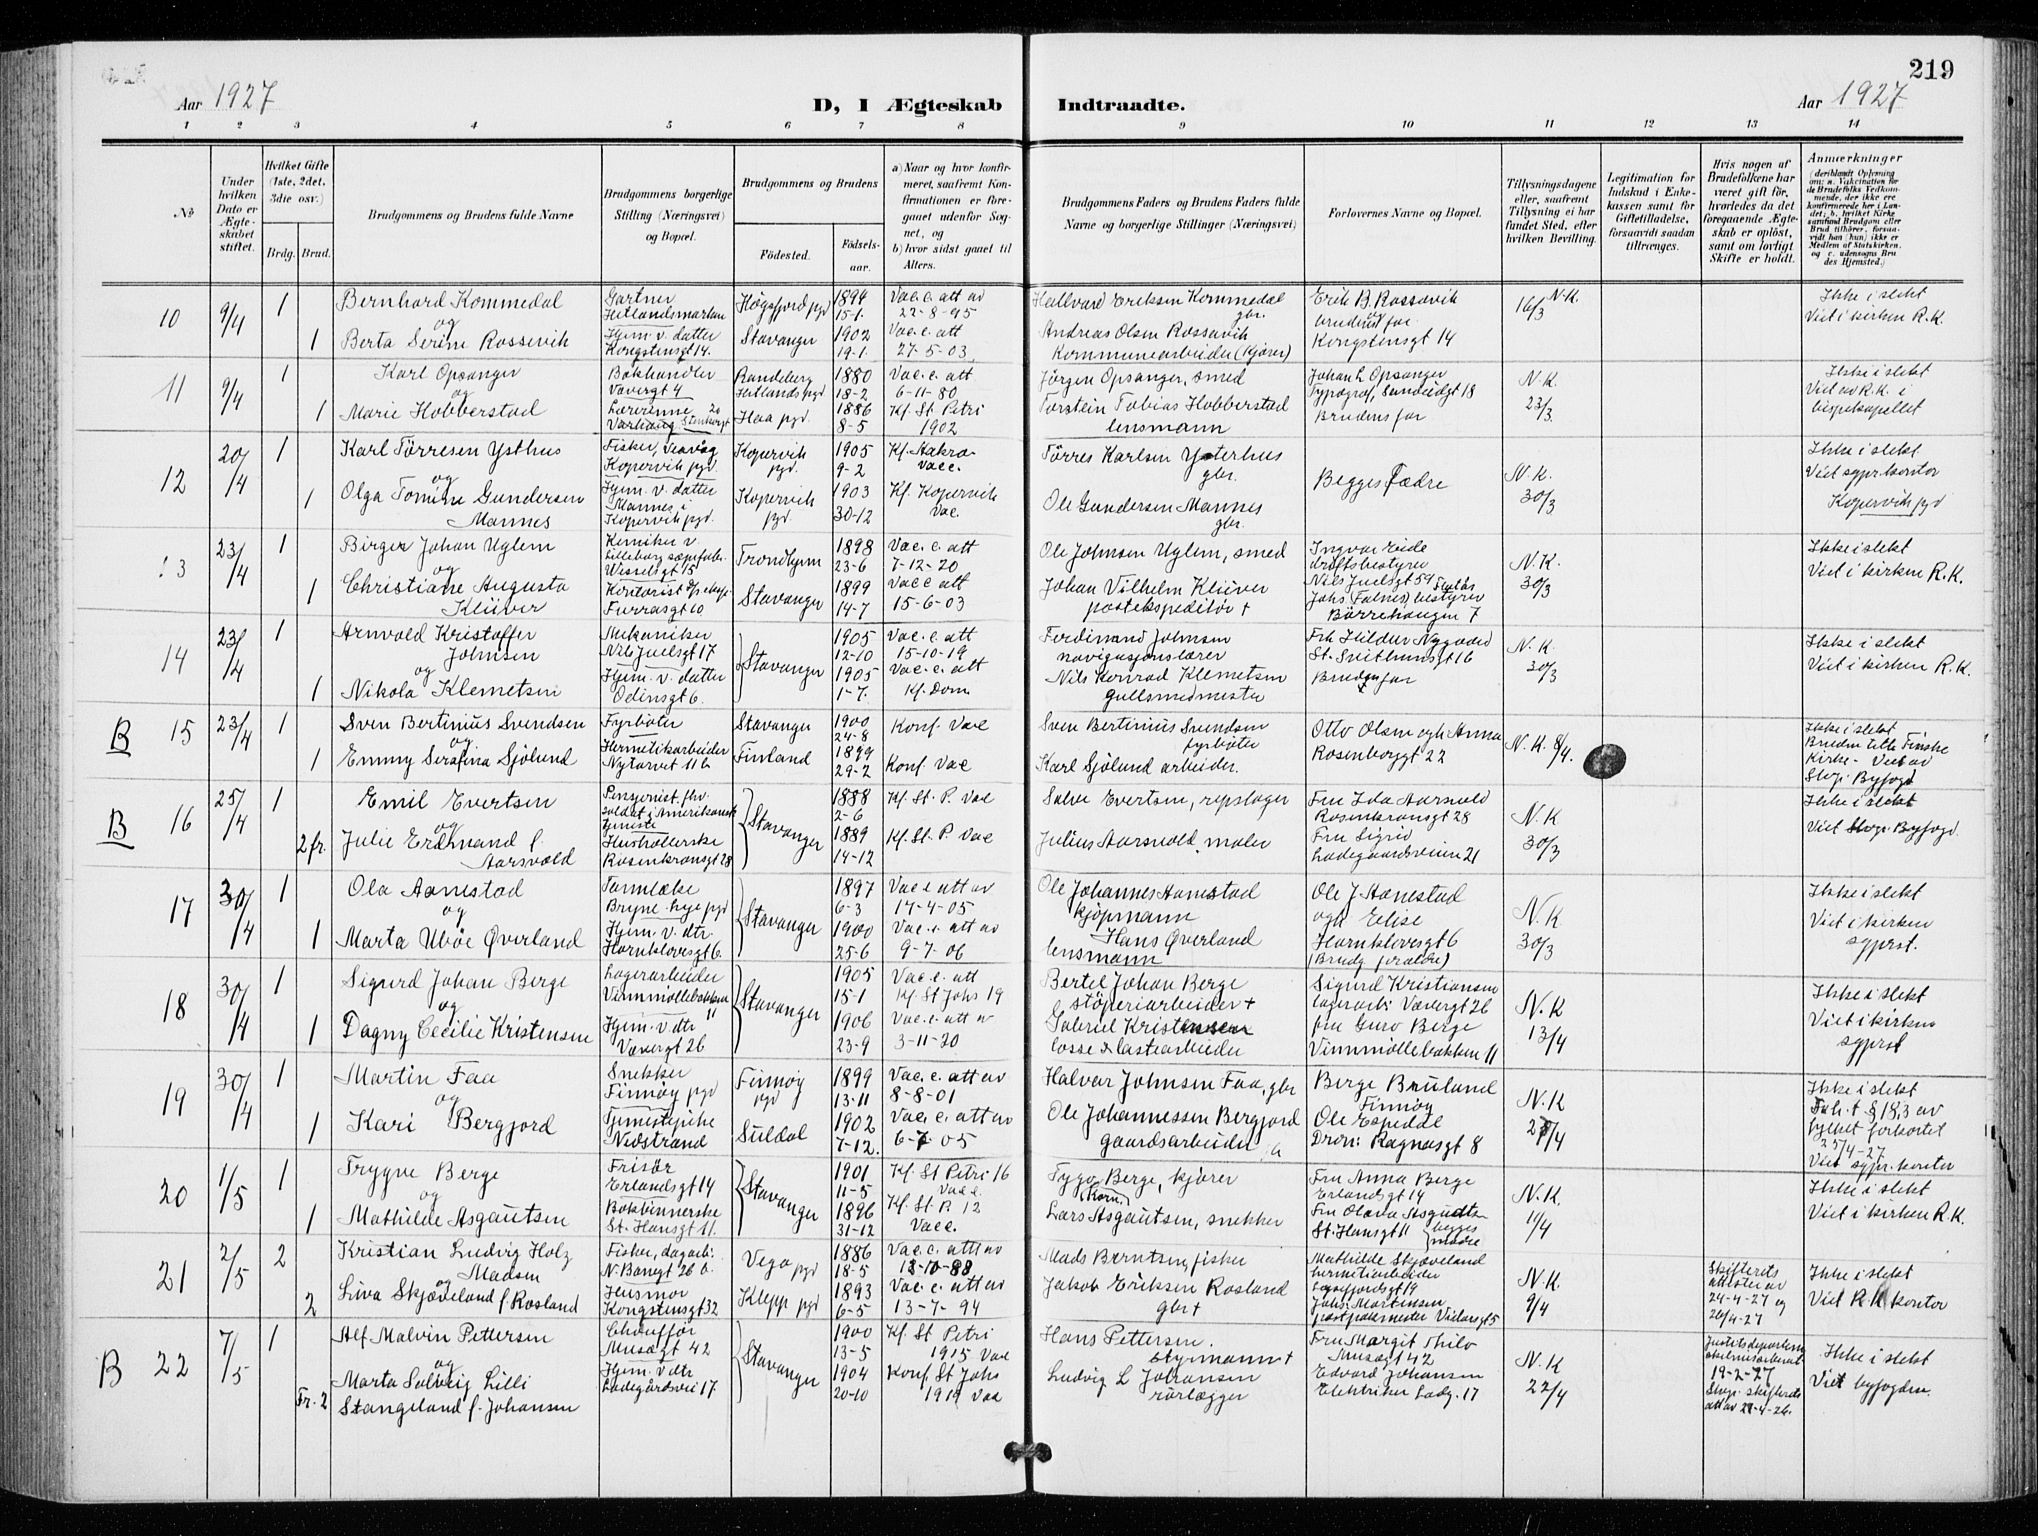 219
Aar 1927
D, I Ægteskab Indtraadte.
Aar 1927
1 2 3 4 5 6 7 8 9 10 11 12 13 14
No
Under hvilken Dato er Ægteskabet stiftet.
Hvilket Gifte (1ste, 2det, 3die osv.)
Brdg. Brud.
Brudgommens og Brudens fulde Navne
Brudgommens borgerlige Stilling (Næringsvei) og Bopæl.
Brudgommens og Brudens
Fødested.
Fødselsaar.
a) Naar og hvor konfirmeret, saafremt Konfirmationen er foregaaet udenfor Sognet, og
b) hvor sidst gaaet til Alters.
Brudgommens Faders og Brudens Faders fulde Navne og borgerlige Stillinger (Næringsvei)
Forlovernes Navne og Bopæl.
Tillysningsdagene eller, saafremt Tillysning ei har fundet Sted, efter hvilken Bevilling.
Legitimation for Indskud i Enkekassen samt for Giftetilladelse, forsaavidt saadan tiltrænges.
Hvis nogen af Brudefolkene har været gift før, hvorledes da det foregaaende Ægteskab er opløst, samt om lovligt Skifte er holdt.
Anmærkninger
(deriblandt Oplysning om: a. Vakcination for de Brudefolks Vedkommende, der ikke ere konfirmerede her i Landet; b. hvilket Kirkesamfund Brudgom eller Brud tilhører, forsaavidt han (hun) ikke er Medlem af Statskirken, og c. udensogns Brudes Hjemsted.)
10 9/4 1 Bernhard Kommedal
og
1 Berta Serine Rossevik
Gartner
Hetlandsmarken
Hjem. v. datter
Kongstensgt 14.
Høgsfjord pgd
Stavanger
1894
15-1.
1902
19-1.
Vac. e. att av
22-8-95
Vac. e. att
27-5-03
Hallvard Eriksen Kommedal
gbr.
Andreas Olsen Rossavik
Kommunearbeider (Kjører)
Erik B. Rossavik
og
brudens far
Kongstensgt 14
16/3 N.K.
Ikke i slekt
Viet i kirken R.K.
11 9/4 1 Karl Opsanger
og
1 Marie Hobberstad
Bokhandler
Vævergt 4
Lærerinne
Varhaug
Randeberg
Hetlands pgd
Haa pgd.
1880
18-2
1886
8-5
Vac. e. att
6-11-80
Kf. St Petri
1902
Jörgen Opsanger, smed
Torstein Tobias Hobberstad
lensmann
Johan L Opsanger
Typograf, Sandeidgt 18
Brudens far
N.K.
23/3.
Ikke i slekt
Viet av R.K. i
bispekapellet
12 20/4 1 Karl Törresen Ysthus
og
1 Olga Tomine Gundersen
Mannes
Fisker, Veavåg
Kopervik pgd.
Hjem. v. datter
Mannes i
Kopervik pgd.
Kopervik
pgd.
Kopervik
pgd.
1905
9-2
1903
30-12
Kf. Aakra
Vacc.
Kf. Kopervik
Vac.
Törres Karlsen Ysterhus
gbr.
Ole Gundersen Mannes
gbr.
Begges Fædre
N.K.
30/3
Ikke i slekt
Viet sgpr. kontor
Kopervik pgd
13 23/4 1 Birger Johan Uglem
og
1 Christiane Augusta
Klüver
Kemiker v.
Lilleborg sæpefabr.
Wesselsgt 15
Kontorist
Furrasgt 10
Trondhjem
Stavanger
1898
23-6
1899
14-7
Vac. e. att
7-12-20
Vac e att
15-6-03
Ole Johnsen Uglem, smed
Johan Vilhelm Klüver
postekspeditör +
Ingvar Eide
driftsbestyrer
Nils Juelsgt 59
Johs Falnes, bestyrer
Börrehaugen 7
N.K.
30/3
Ikke i slekt
Viet i kirken R.K.
14 23/4 1 Arnvald Kristoffer
Johnsen
og
1 Nikola Klemetsen
Mekaniker
Nils Juelsgt 17
Hjem. v. datter
Odinsgt 6.
Stavanger
1905
12-10
1905
1-7.
Vac. e. att
15-10-19
Vac. e. att
Kf. Dom
Ferdinand Johnsen
navigasjonslærer
Nils Konrad Klemetsen
gullsmedmester
Frk Hildur Nygaard
St. Svithunsgt 16
Brudens far
N.K.
30/3
Ikke i slekt
Viet i kirken R.K.
B 15 23/4 1 Sven Bertinius Svendsen
og
1 Emmy Serafina Sjölund
Fyrböter
Hermetikarbeider
Nytorvet 11 b
Stavanger
Finland
1900
24-8
1899
29-2
Konf. Vac
Konf. Vac
Sven Bertinius Svendsen
fyrböter
Karl Sjölund arbeider.
Otto Olsen ogh Anna
Rosenborggt 22
N.K. 8/4.
Ikke i slekt
Bruden tilh Finske
Kirke - Viet av
Stvgr. Byfogd
B 16 25/4 1 Emil Evertsen
og
2 fr. Julie Erdmand f.
Aarsvold
Pensjonist. fhv.
soldat i Amerikansk
tjeneste
Husholderske
Rosenkransgt 28
Stavanger
1888
2-6
1889
14-12
Kf. St. P. Vac
Kf. St. P. Vac
Salve Evertsen, repslager
Julius Aarsvold, maler
Fru Ida Aarsvold
Rosenkransgt 28
Fru Sigrid
Ladegaardsveien 21
N.K
30/3
Ikke i slekt
Viet Stvgr. Byfogd.
17 30/4 1 Ola Aanestad
og
1 Marta Ubøe Øverland
Tannlæke
Bryne
Hjem v. dtr.
Hornklovesgt 6.
Stavanger
1897
6-3
1900
25-6
Vac e att av
17-4-05
Vac. e att av
9-7-06
Ole Johannes Aanestad
kjøpmann
Hans Øverland
lensmann
Ole J Aanestad
ogh Elise
Hornklovesgt 6
(Brudg forældre)
N.K
30/3
Ikke i slekt
Viet i kirken
sgprst.
18 30/4 1 Sigurd Johan Berge
og
1 Dagny Cecilie Kristensen
Lagerarbeider
Vinnmöllebakken
11
Hjem. v dtr
Vævergt 26
Stavanger
1905
15-1
1906
23-9
Vac. e. att
Kf. St Johs 19
Vac. e. att av
3-11-20
Bertel Johan Berge
støperiarbeider +
Gabriel Kristensen
losse & lastearbeider
Sigurd Kristiansen
lagerarb. Vævergt 26
fru Guro Berge
Vinnmöllebakken 11
N.K
13/4
Ikke i slekt
Viet i kirken
sgprst
19 30/4 1 Martin Faa
og
1 Kari Bergjord
Snekker
Finnøy pgd
Tjenestepike
Nedstrand
Finnøy
pgd
Suldal
1899
13-11
1902
7-12.
Vac. e. att av
8-8-01
Vac. e. att av
6-7-05
Halvar Johnsen Faa, gbr
Ole Johannessen Bergjord
gaardsarbeider
Berge Bruland
Finnøy
Ole Espedal
Dron: Ragnasgt 8
N.K
27/4
Ikke i slekt
§ 18,3 av
forkortet
25/4-27
Viet sgpr. kontor
20 1/5 1 Trygve Berge
og
1 Mathilde Asgautsen
Frisör
Erlandsgt 14
Bokbinnerske
St. Hansgt 11.
Stavanger
1901
11-5
1896
31-12
Kf. St Petri 16
Vacc.
Kf. St P. 12
Vacc.
Tygo Berge, kjører
Lars Asgautsen, snekker
Fru Anna Berge
Erlandsgt 14
Fru Olava Asgautsen
St. Hansgt 11
begges
mødre
N.K.
11/4
Ikke i slekt
Viet i kirken R.K.
21 2/5 2 Kristian Ludvig Holz
Madsen
og
2 Liva Skjæveland f. Rosland
Fisker, dagarb.
N. Banegt 26 b.
Husmor
Kongstensgt 32
Vega pgd
Klepp pgd
1886
18-5
1893
6-5
Vac. e. att av
13-10-88
Vac. e. att av
13-7-94
Mads Berntsen, fisker
Jakob Eriksen Rosland
gbr +
Mathilde Skjæveland
hermetikarbeider
Lysefjordsgt 19
Johs Martinsen
Vidarsgt 5
N.K
9/4
Skifterets
attester av
24-4-27 og
26/4-27
Ikke i slekt
Viet R.K kontor
B 22 7/5 1 Alf Malvin Pettersen
og
Fr. 2 Marta Solveig Lilli
Stangeland f. Johansen
Chauffør
Musègt 42
Hjem. v dtr
Ladegårdsvei 17.
Stavanger
1900
13-5
1904
20-10
Kf. St Petri
1915 Vac
Konf St Johs
1919 Vac
Hans Pettersen.
Styrmann +
Ludvig L Johansen
rörlegger
Fru Margit Thilo
Musègt 42
Edvard Johansen
Elektriker Ladg. 17
N.K
22/4
19-2-27
Stvgr. skifterets
att av 21-4-26.
Ikke i slekt
Viet byfogden.